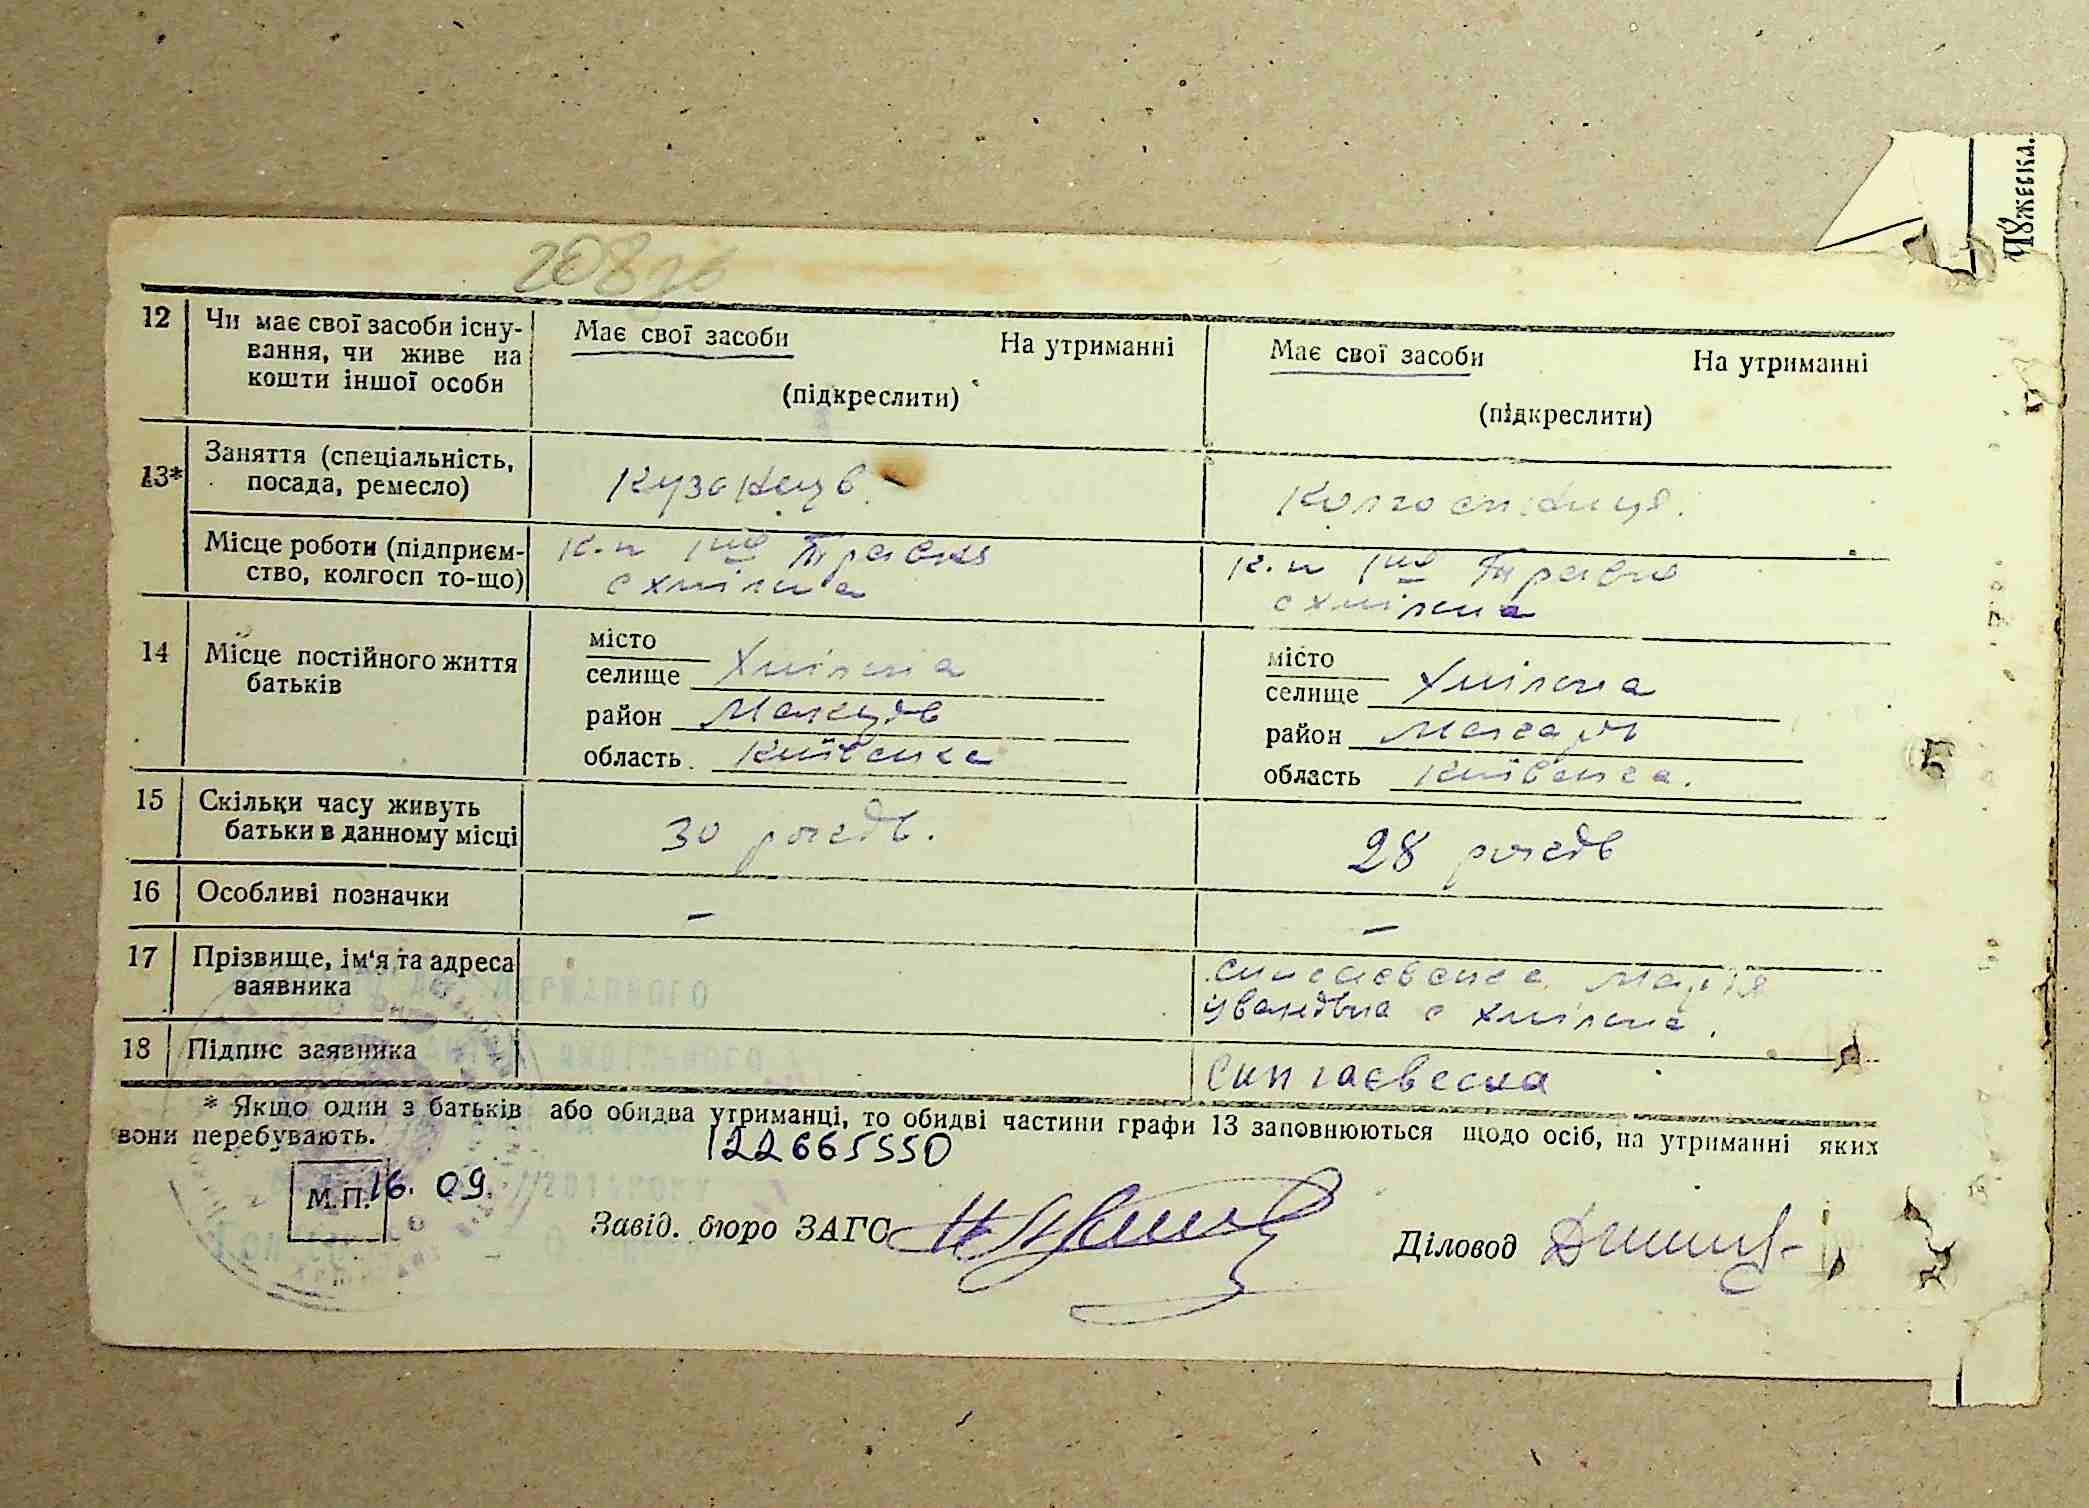 20826
12 Чи має свої засоби існу-
вання, чи живе на
кошти іншої особи
Має свої засоби На утриманні
(підкреслити)
Має свої засоби На утриманні
(підкреслити)
13* Заняття (спеціальність,
посада, ремесло)
Колгоспниця.
Місце роботи (підприєм-
ство, колгосп то-що)
к-п 1го Травня
с Хмільна
к-п 1го Травня
с Хмільна
14 Місце постійного життя
батьків
місто
селище Хмільна
район
область Київська
місто
селище Хмільна
район
область Київська.
15 Скільки часу живуть
батьки в данному місці
30 років.
28 років
16 Особливі позначки
–
–
17 Прізвище, ім'я та адреса
заявника
Марія
Іванівна с Хмільна.
18 Підпис заявника
Сингаєвсска
* Якщо один з батьків або обидва утриманці, то обидві частини графи 13 заповнюються щодо осіб, на утриманні яких
вони перебувають.
122665550
М.П. 16. 09.
Завід. бюро ЗАГС
Діловод